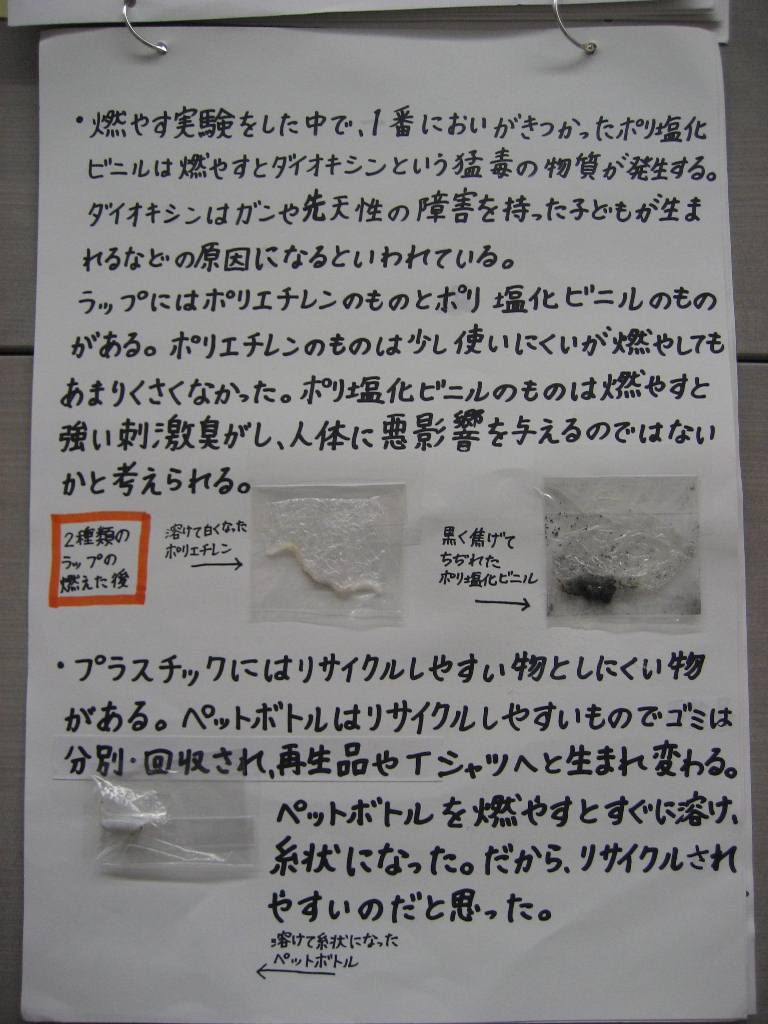 ・燃やす実験をした中で、1番においがきつかったポリ塩化
ビニルは燃やすとダイオキシンという猛毒の物質が発生する。
ダイオキシンはガンや先天性の障害を持った子どもが生ま
れるなどの原因になるといわれている。
ラップにはポリエチレンのものとポリ塩化ビニルのもの
がある。ポリエチレンのものは少し使いにくいが燃やしても
あまりくさくなかった。ポリ塩化ビニルのものは燃やすと
強い刺激臭がし、人体に悪影響を与えるのではない
かと考えられる。
2種類の
ラップの
燃えた後
溶けて白くなった
ポリエチレン
黒く焦げて
ちぢれた
ポリ塩化ビニル
・プラスチックにはリサイクルしやすい物としにくい物
がある。ペットボトルはリサイクルしやすいものでゴミは
分別・回収され、再生品やTシャツへと生まれ変わる。
ペットボトルを燃やすとすぐに溶け、
糸状になった。だから、リサイクルされ
やすいのだと思った。
溶けて糸状になった
ペットボトル